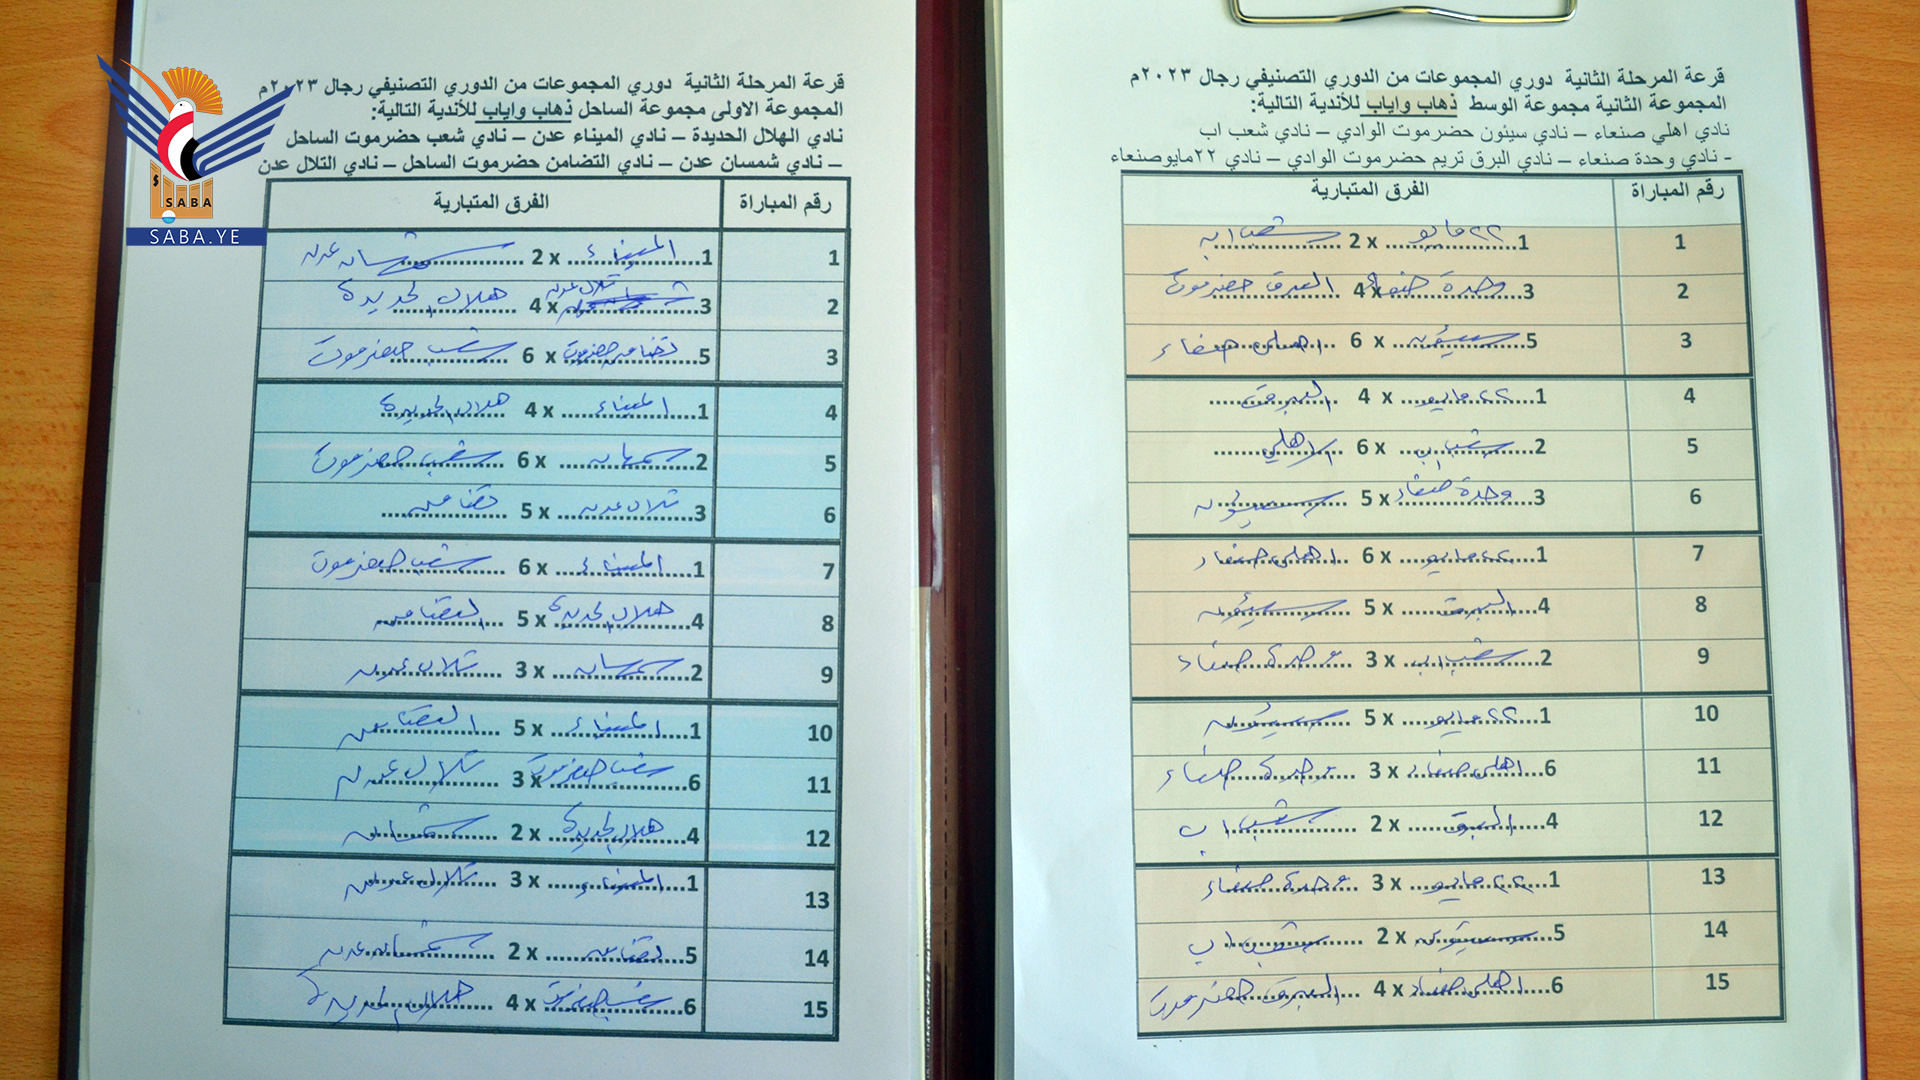 SABA
SABA.YE
قرعة المرحلة الثانية دوري المجموعات من الدوري التصنيفي رجال ٢٠٢٣م
المجموعة الاولى مجموعة الساحل ذهاب واياب للأندية التالية:
نادي الهلال الحديدة – نادي الميناء عدن – نادي شعب حضرموت الساحل
– نادي شمسان عدن – نادي التضامن حضرموت الساحل – نادي التلال عدن
رقم المباراة الفرق المتبارية
1 1 الميناء x 2 شمسان عدن
2 3 تلال عدن x 4 هلال الحديدة
3 5 تضامن حضرموت x 6 شعب حضرموت
4 1 الميناء x 4 هلال الحديدة
5 2 شمسان x 6 شعب حضرموت
6 3 تلال عدن x 5 تضامن
7 1 الميناء x 6 شعب حضرموت
8 4 هلال الحديدة x 5 التضامن
9 2 شمسان x 3 تلال عدن
10 1 الميناء x 5 التضامن
11 6 شعب حضرموت x 3 تلال عدن
12 4 هلال الحديدة x 2 شمسان
13 1 الميناء x 3 تلال عدن
14 5 تضامن x 2 شمسان عدن
15 6 شعب حضرموت x 4 هلال الحديدة
قرعة المرحلة الثانية دوري المجموعات من الدوري التصنيفي رجال ٢٠٢٣م
المجموعة الثانية مجموعة الوسط ذهاب واياب للأندية التالية:
نادي اهلي صنعاء – نادي سيئون حضرموت الوادي – نادي شعب اب
- نادي وحدة صنعاء – نادي البرق تريم حضرموت الوادي – نادي ٢٢مايوصنعاء
رقم المباراة الفرق المتبارية
1 1 ٢٢ مايو x 2 شعب اب
2 3 وحدة صنعاء x 4 البرق حضرموت
3 5 سيئون x 6 اهلي صنعاء
4 1 ٢٢ مايو x 4 البرق
5 2 شعب اب x 6 الاهلي
6 3 وحدة صنعاء x 5 سيئون
7 1 ٢٢ مايو x 6 اهلي صنعاء
8 4 البرق x 5 سيئون
9 2 شعب اب x 3 وحدة صنعاء
10 1 ٢٢ مايو x 5 سيئون
11 6 اهلي صنعاء x 3 وحدة صنعاء
12 4 البرق x 2 شعب اب
13 1 ٢٢ مايو x 3 وحدة صنعاء
14 5 سيئون x 2 شعب اب
15 6 اهلي صنعاء x 4 البرق حضرموت